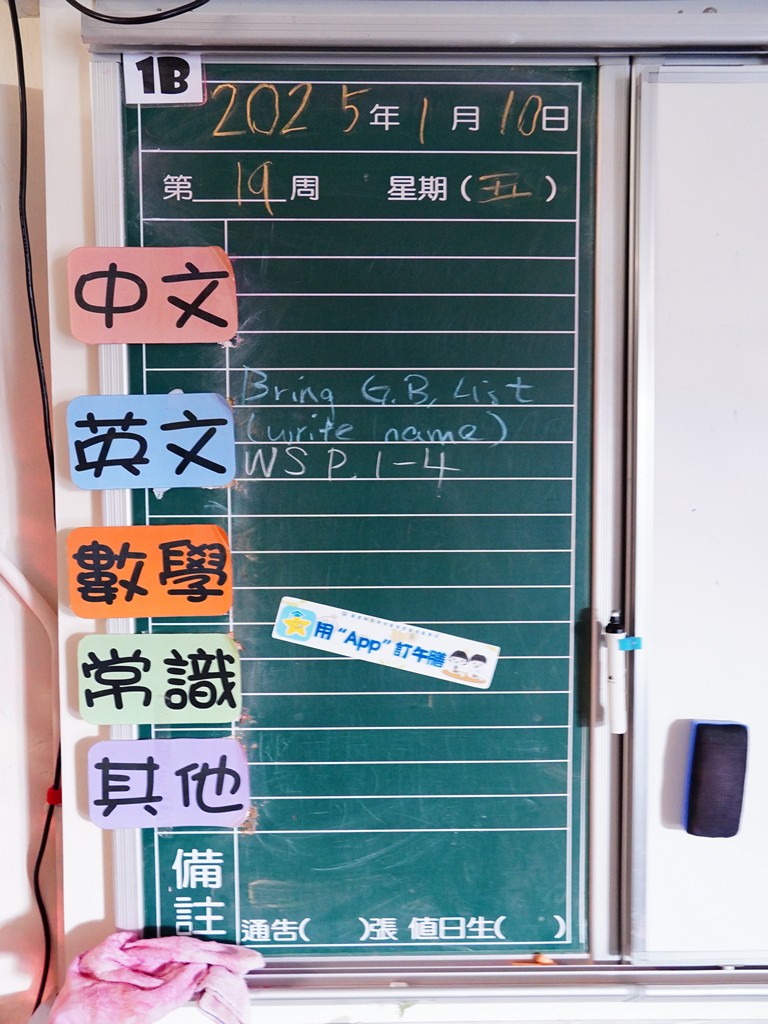 1B
2025年1月10日
第19周 星期(五)
中文
英文
Bring G.B. List
(write name)
WS P.1-4
數學
用“App”訂午膳
常識
其他
備註
通告( )張 值日生( )